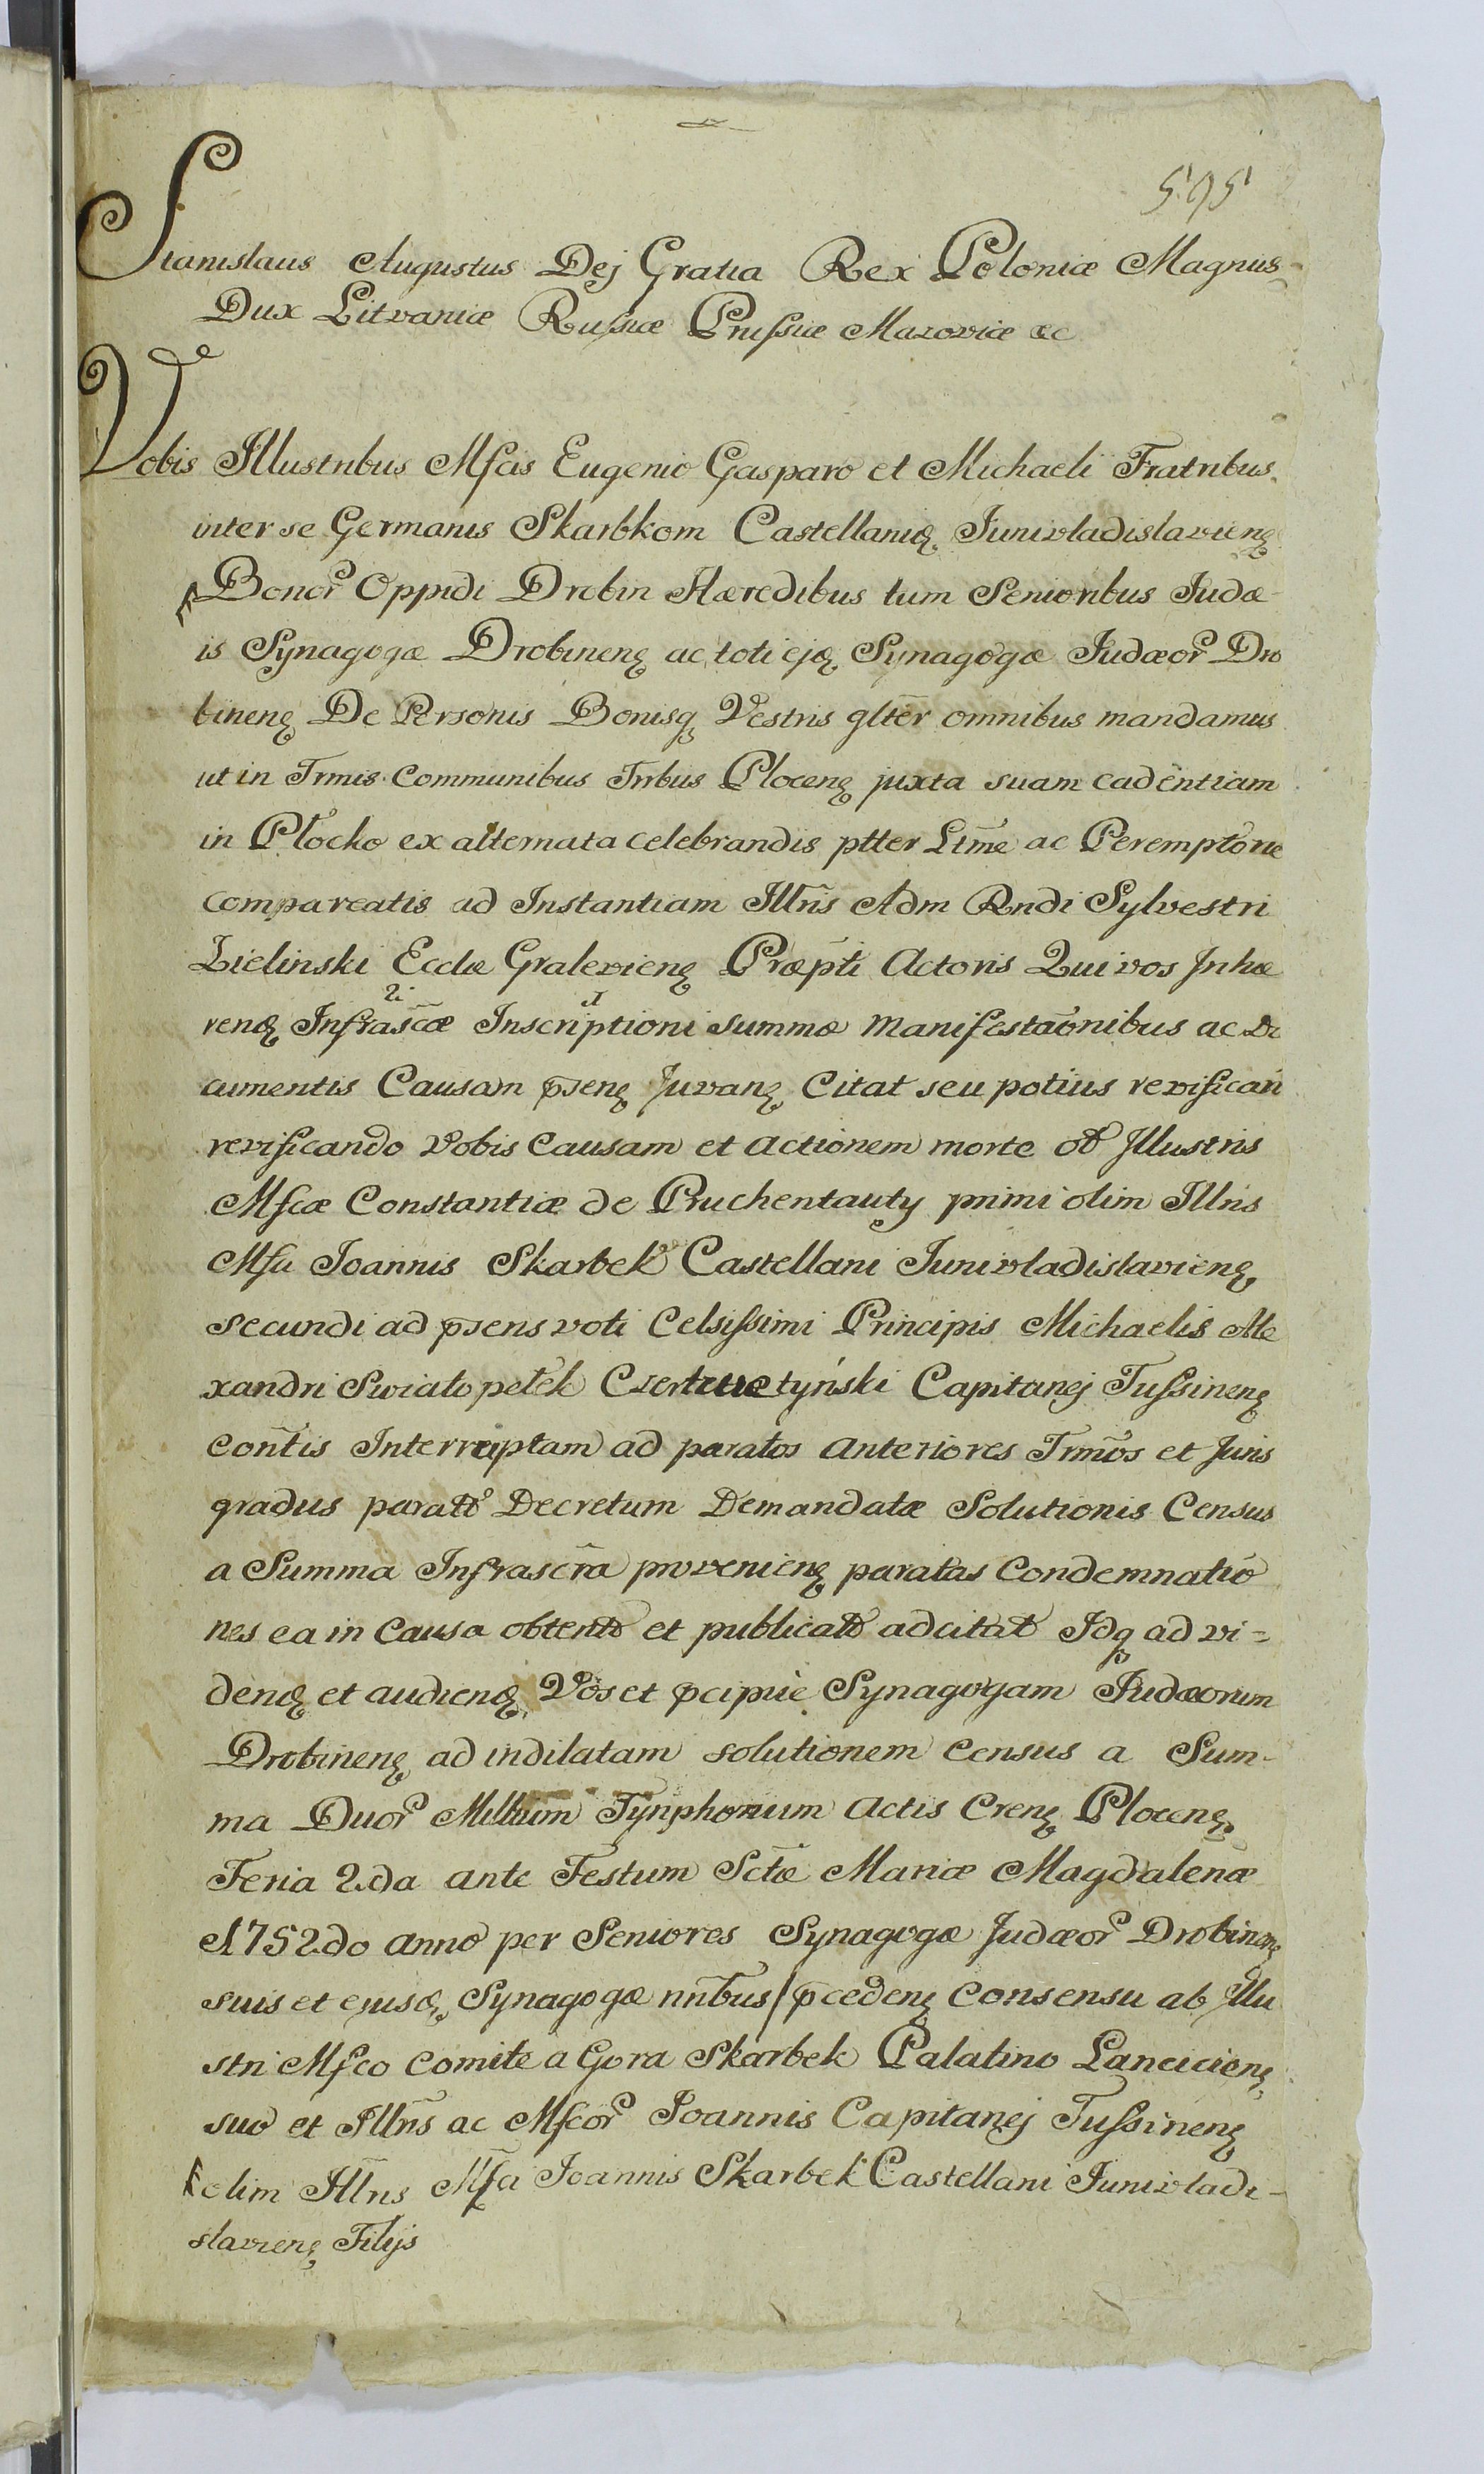 595
Stanislaus Augustus Dej Gratia Rex Poloniæ Magnus
Dux Litvaniæ Russiæ Prussiæ Mazoviæ &c
Vobis Illustribus Mfcis Eugenio Gasparo et Michaeli Fratribus
inter se Germanis Skarbkom Castellanid. Junivladislavieng
Bonor Oppidi Drobin Hæredibus tum Senioribus Judæ-
is Synagogæ Drobineng ac toti ejq Synagogæ Judæor Dro
bineng De Personis Bonisq Vestris glter omnibus mandamus
ut in Trmis Communibus Trrbus Ploceng juxta suam cadentiam
in Płocko ex alternata celebrandis ptter Ltme ac Peremptorie
compareatis ad Instantiam Illris Adm Rndi Sylvestri
Zielinski Eccliæ Gralevieng Præpti Actoris Qui vos Inhæ
rendg Infrascæ Inscriptioni Summæ Manifestaonibus ac Do
cumentis Causam pseng Juvang Citat seu potius revifican
revificando Vobis Causam et actionem morte ob Illustris
Mfcæ Constantiæ de Pruchentauty primi olim Illris
Mfci Joannis Skarbek Castellani Junivladislavieng
secundi ad psens voti Celsissimi Principis Michaelis Ale
xandri Swiatopełek Czertwetyński Capitanej Tussineng
contis Interruptam ad paratos anteriores Trmos et Juris
gradus parato Decretum Demandatæ Solutionis Census
a Summa Infrascra provenieng paratas Condemnatio
nes ea in Causa obtento et publicato adcitat Idq ad vi=
dend et audiend Vos et pcipue Synagogam Judæorum
Drobineng ad indilatam solutionem Census a Sum-
ma Duor Millium Tynphorum Actis Creng Ploceng
Feria 2da ante Festum Sctæ Mariæ Magdalenæ
1752do anno per Seniores Synagogæ Judæor Drobineng
suis et ejusd Synagogæ nnbus / pcedeng Consensu ab Illu
stri Mfco Comite a Gora Skarbek Palatino Lancicieng
suo et Illris ac Mfcor Joannis Capitanej Tussineng
olim Illris Mfci Joannis Skarbek Castellani Junivladi-
slavieng Filijs